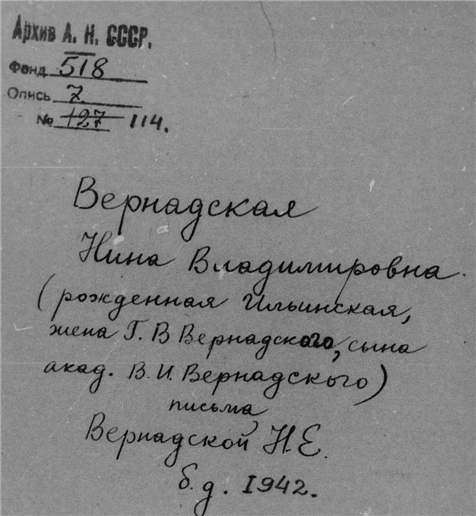 Архив А. Н. СССР.
Фонд 518
Опись 7
№ 127 114.
Вернадская
Нина Владимировна.
(рожденная Ильинская,
жена Г. В Вернадского, сына
акад. В. И. Вернадского)
письма
Вернадской Н. Е.
б. д. 1942.